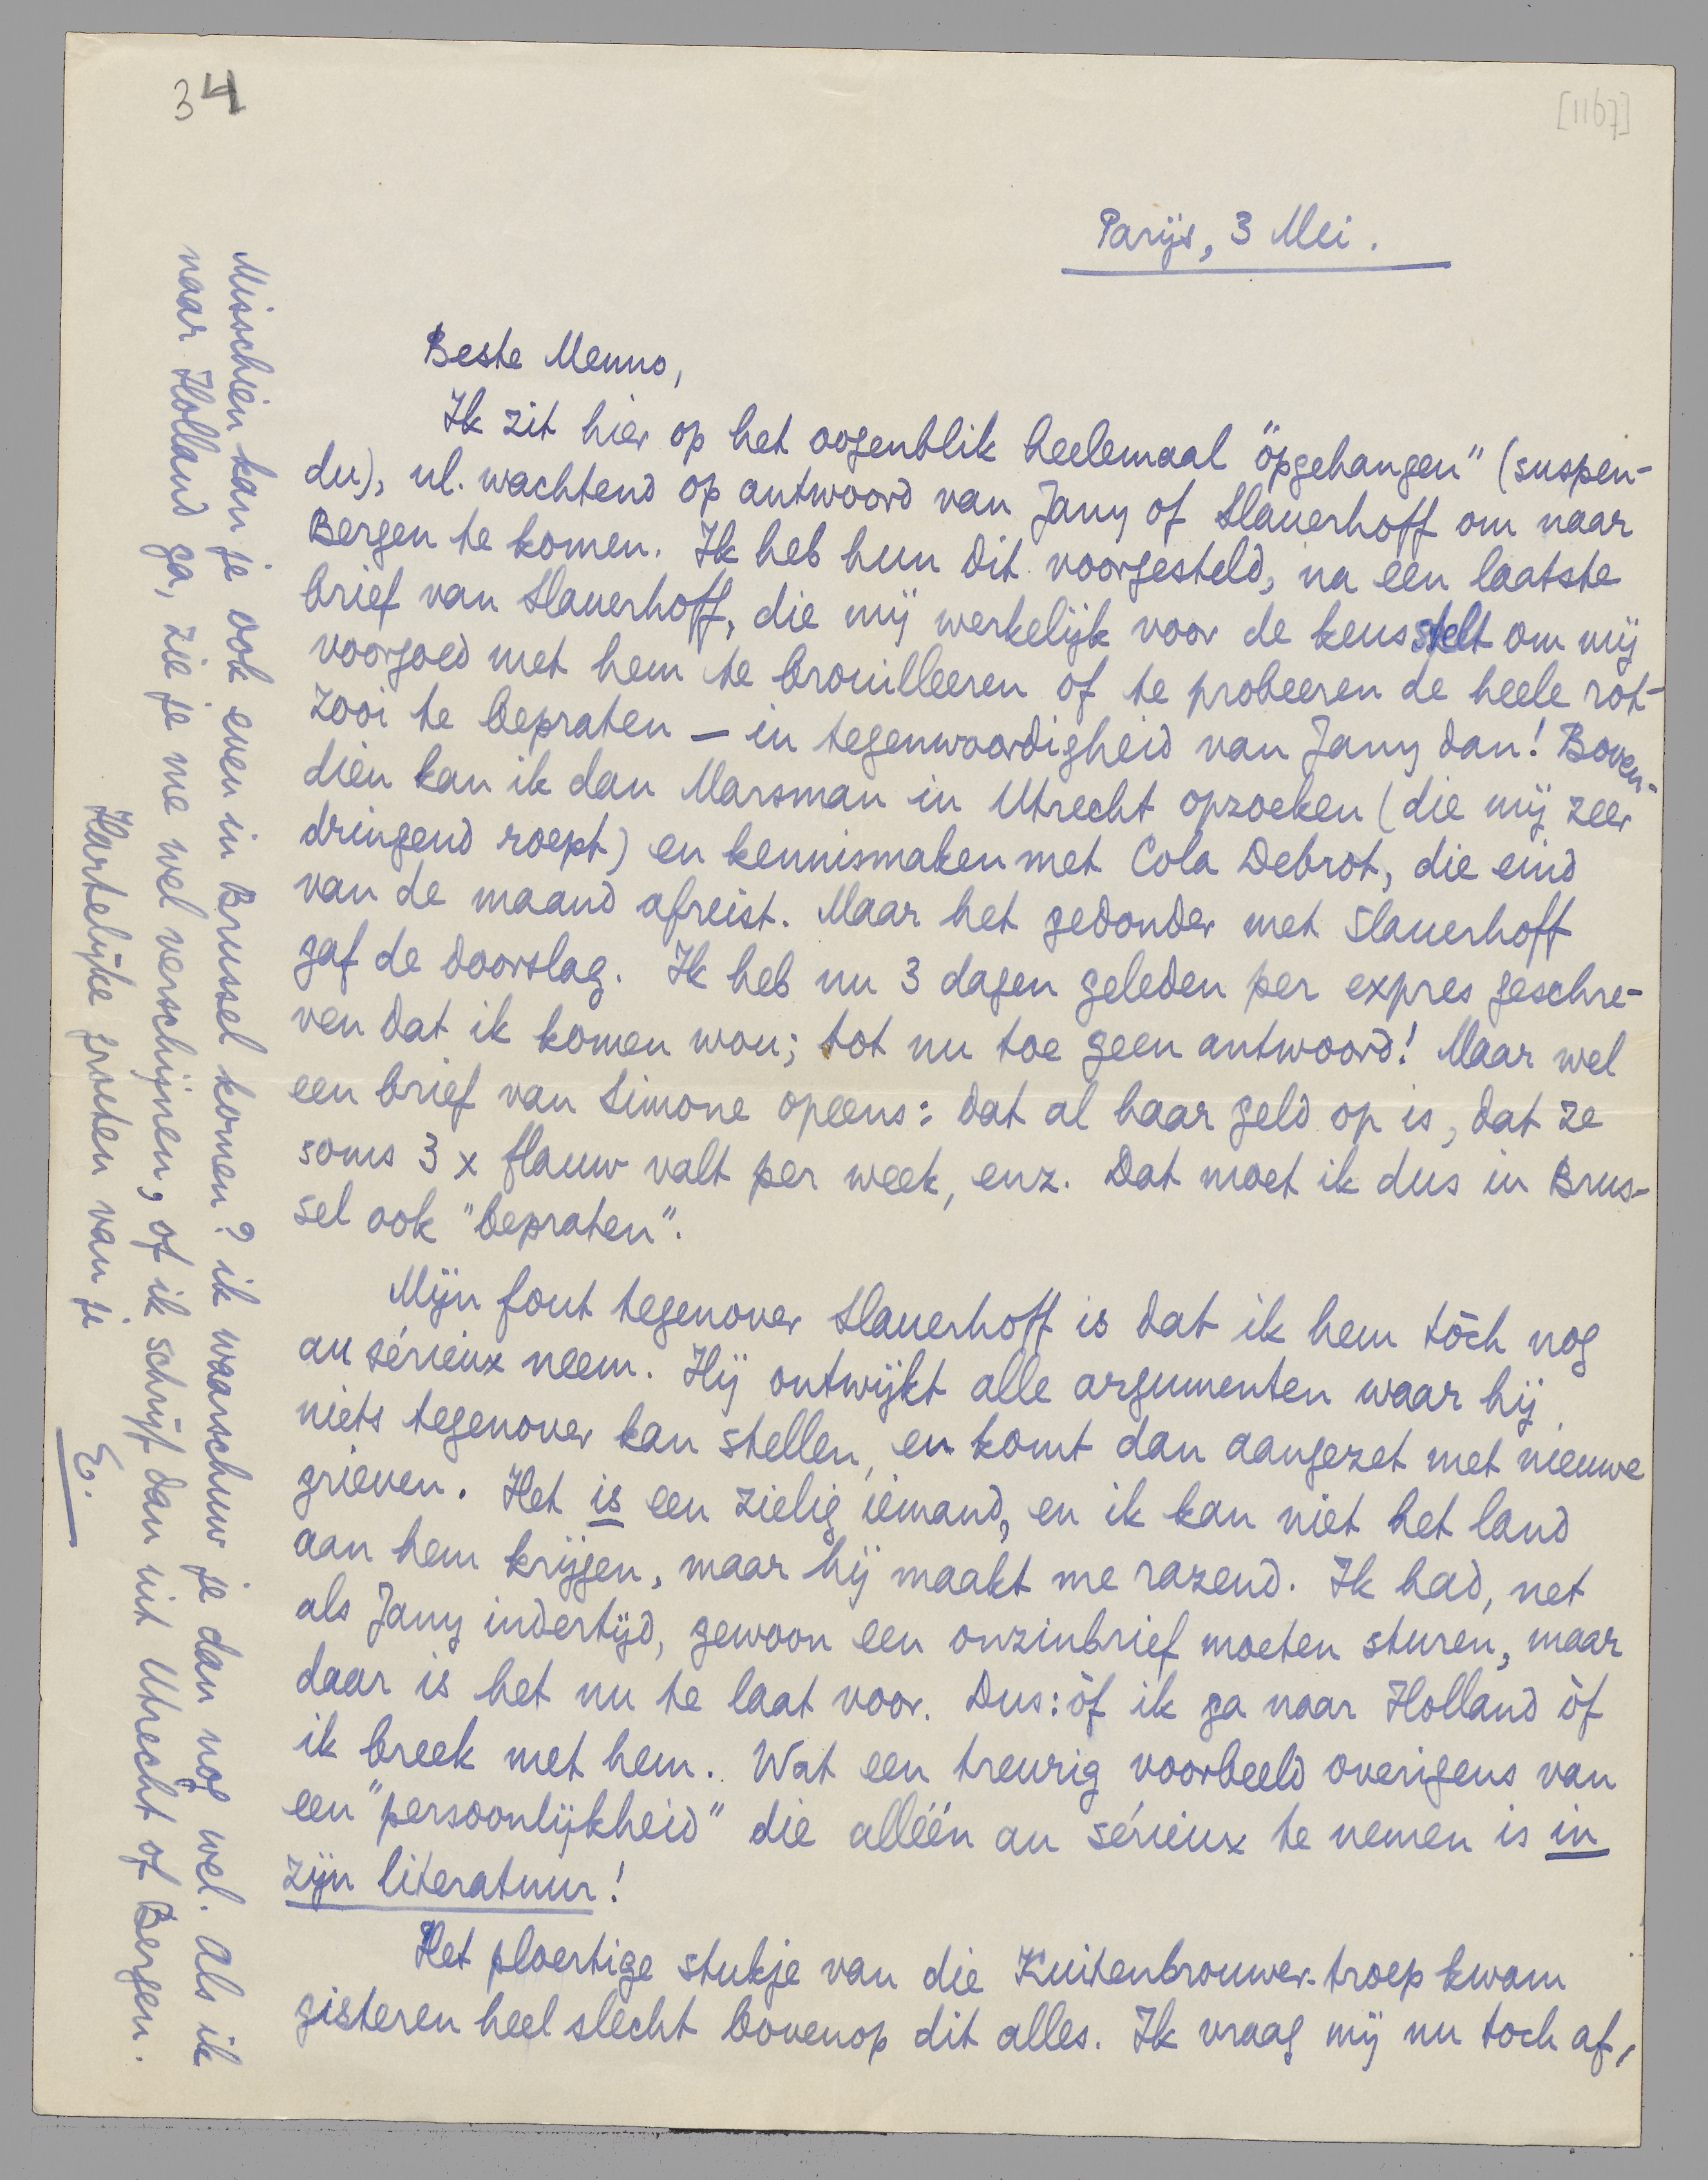 34
[1167]
Parijs, 3 Mei.
Beste Menno,
Ik zit hier op het oogenblik heelemaal "opgehangen" (suspen-
du), nl. wachtend op antwoord van Jany of Slauerhoff om naar
Bergen te komen. Ik heb hun dit voorgesteld, na een laatste
brief van Slauerhoff, die mij werkelijk voor de keus stelt om mij
voorgoed met hem te brouilleeren of te probeeren de heele rot-
zooi te bepraten — in tegenwoordigheid van Jany dan! Boven-
dien kan ik dan Marsman in Utrecht opzoeken (die mij zeer
dringend roept) en kennismaken met Cola Debrot, die eind
van de maand afreist. Maar het gedonder met Slauerhoff
gaf de doorslag. Ik heb nu 3 dagen geleden per expres geschre-
ven dat ik komen wou; tot nu toe geen antwoord! Maar wel
een brief van Simone opeens: dat al haar geld op is, dat ze
soms 3 x flauw valt per week, enz. Dat moet ik dus in Brus-
sel ook "bepraten".
Mijn fout tegenover Slauerhoff is dat ik hem tòch nog
au sérieux neem. Hij ontwijkt alle argumenten waar hij
niets tegenover kan stellen, en komt dan aangezet met nieuwe
grieven. Het is een zielig iemand, en ik kan niet het land
aan hem krijgen, maar hij maakt me razend. Ik had, net
als Jany indertijd, gewoon een onzinbrief moeten sturen, maar
daar is het nu te laat voor. Dus: òf ik ga naar Holland òf
ik breek met hem. Wat een treurig voorbeeld overigens van
een "persoonlijkheid" die alléén au sérieux te nemen is in
zijn literatuur!
Het ploertige stukje van die Kuitenbrouwer-troep kwam
gisteren heel slecht bovenop dit alles. Ik vraag mij nu toch af,
Misschien kan je ook even in Brussel komen? ik waarschuw je dan nog wel. Als ik
naar Holland ga, zie je me wel verschijnen, of ik schrijf dan uit Utrecht of Bergen.
Hartelijke groeten van je
E.